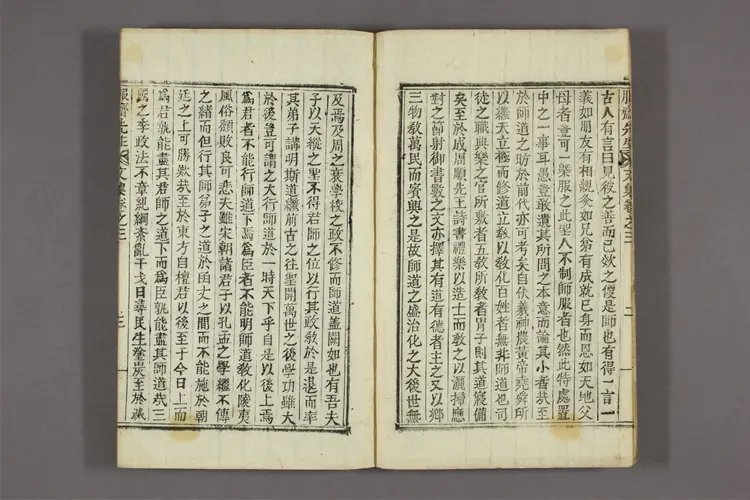 古人有言曰見彼之善而已效之便是師也有得一言一
義如朋友有相親炙如兄弟有成就己身而恩如天地父
母者豈可一槩服之此聖人不制師服者也然此特處置
中之一事耳愚豈敢遺其所問之本意而論其小者哉至
於師道之昉於前代亦可考矣自伏羲神農黃帝堯舜所
以繼天立極而修道立敎以敎化百姓者無非師道也司
徒之職典樂之官所敷者五敎所敎者胄子則其道寖備
矣至於成周順先王詩書禮樂以造士而敎之以灑掃應
對之節射御書數之文亦擇其有道有德者主之又以鄕
三物敎萬民而賓興之是故師道之盛治化之大後世無
及焉及周之衰學校之政不修而師道蓋闕如也有吾夫
子以天縱之聖不得君師之位以行其政敎於是退而率
其弟子講明斯道繼前古之往聖開萬世之後學功雖大
於後豈可謂之大行師道於一時天下乎自是以後上焉
爲君者不能行師道下焉爲臣者不能明師道敎化陵夷
風俗頹敗良可悲夫雖宋朝諸君子以孔孟之學繼不傳
之緖而但行其師弟子之道於函丈之間而不能施於朝
廷之上可勝歎哉至於東方自檀君以後至于今日上而
爲君孰能盡其君師之道下而爲臣孰能盡其師道哉三
國之季政法不章紀綱紊亂干戈日尋民生塗炭至於裁
服齋先生文集卷之三
三